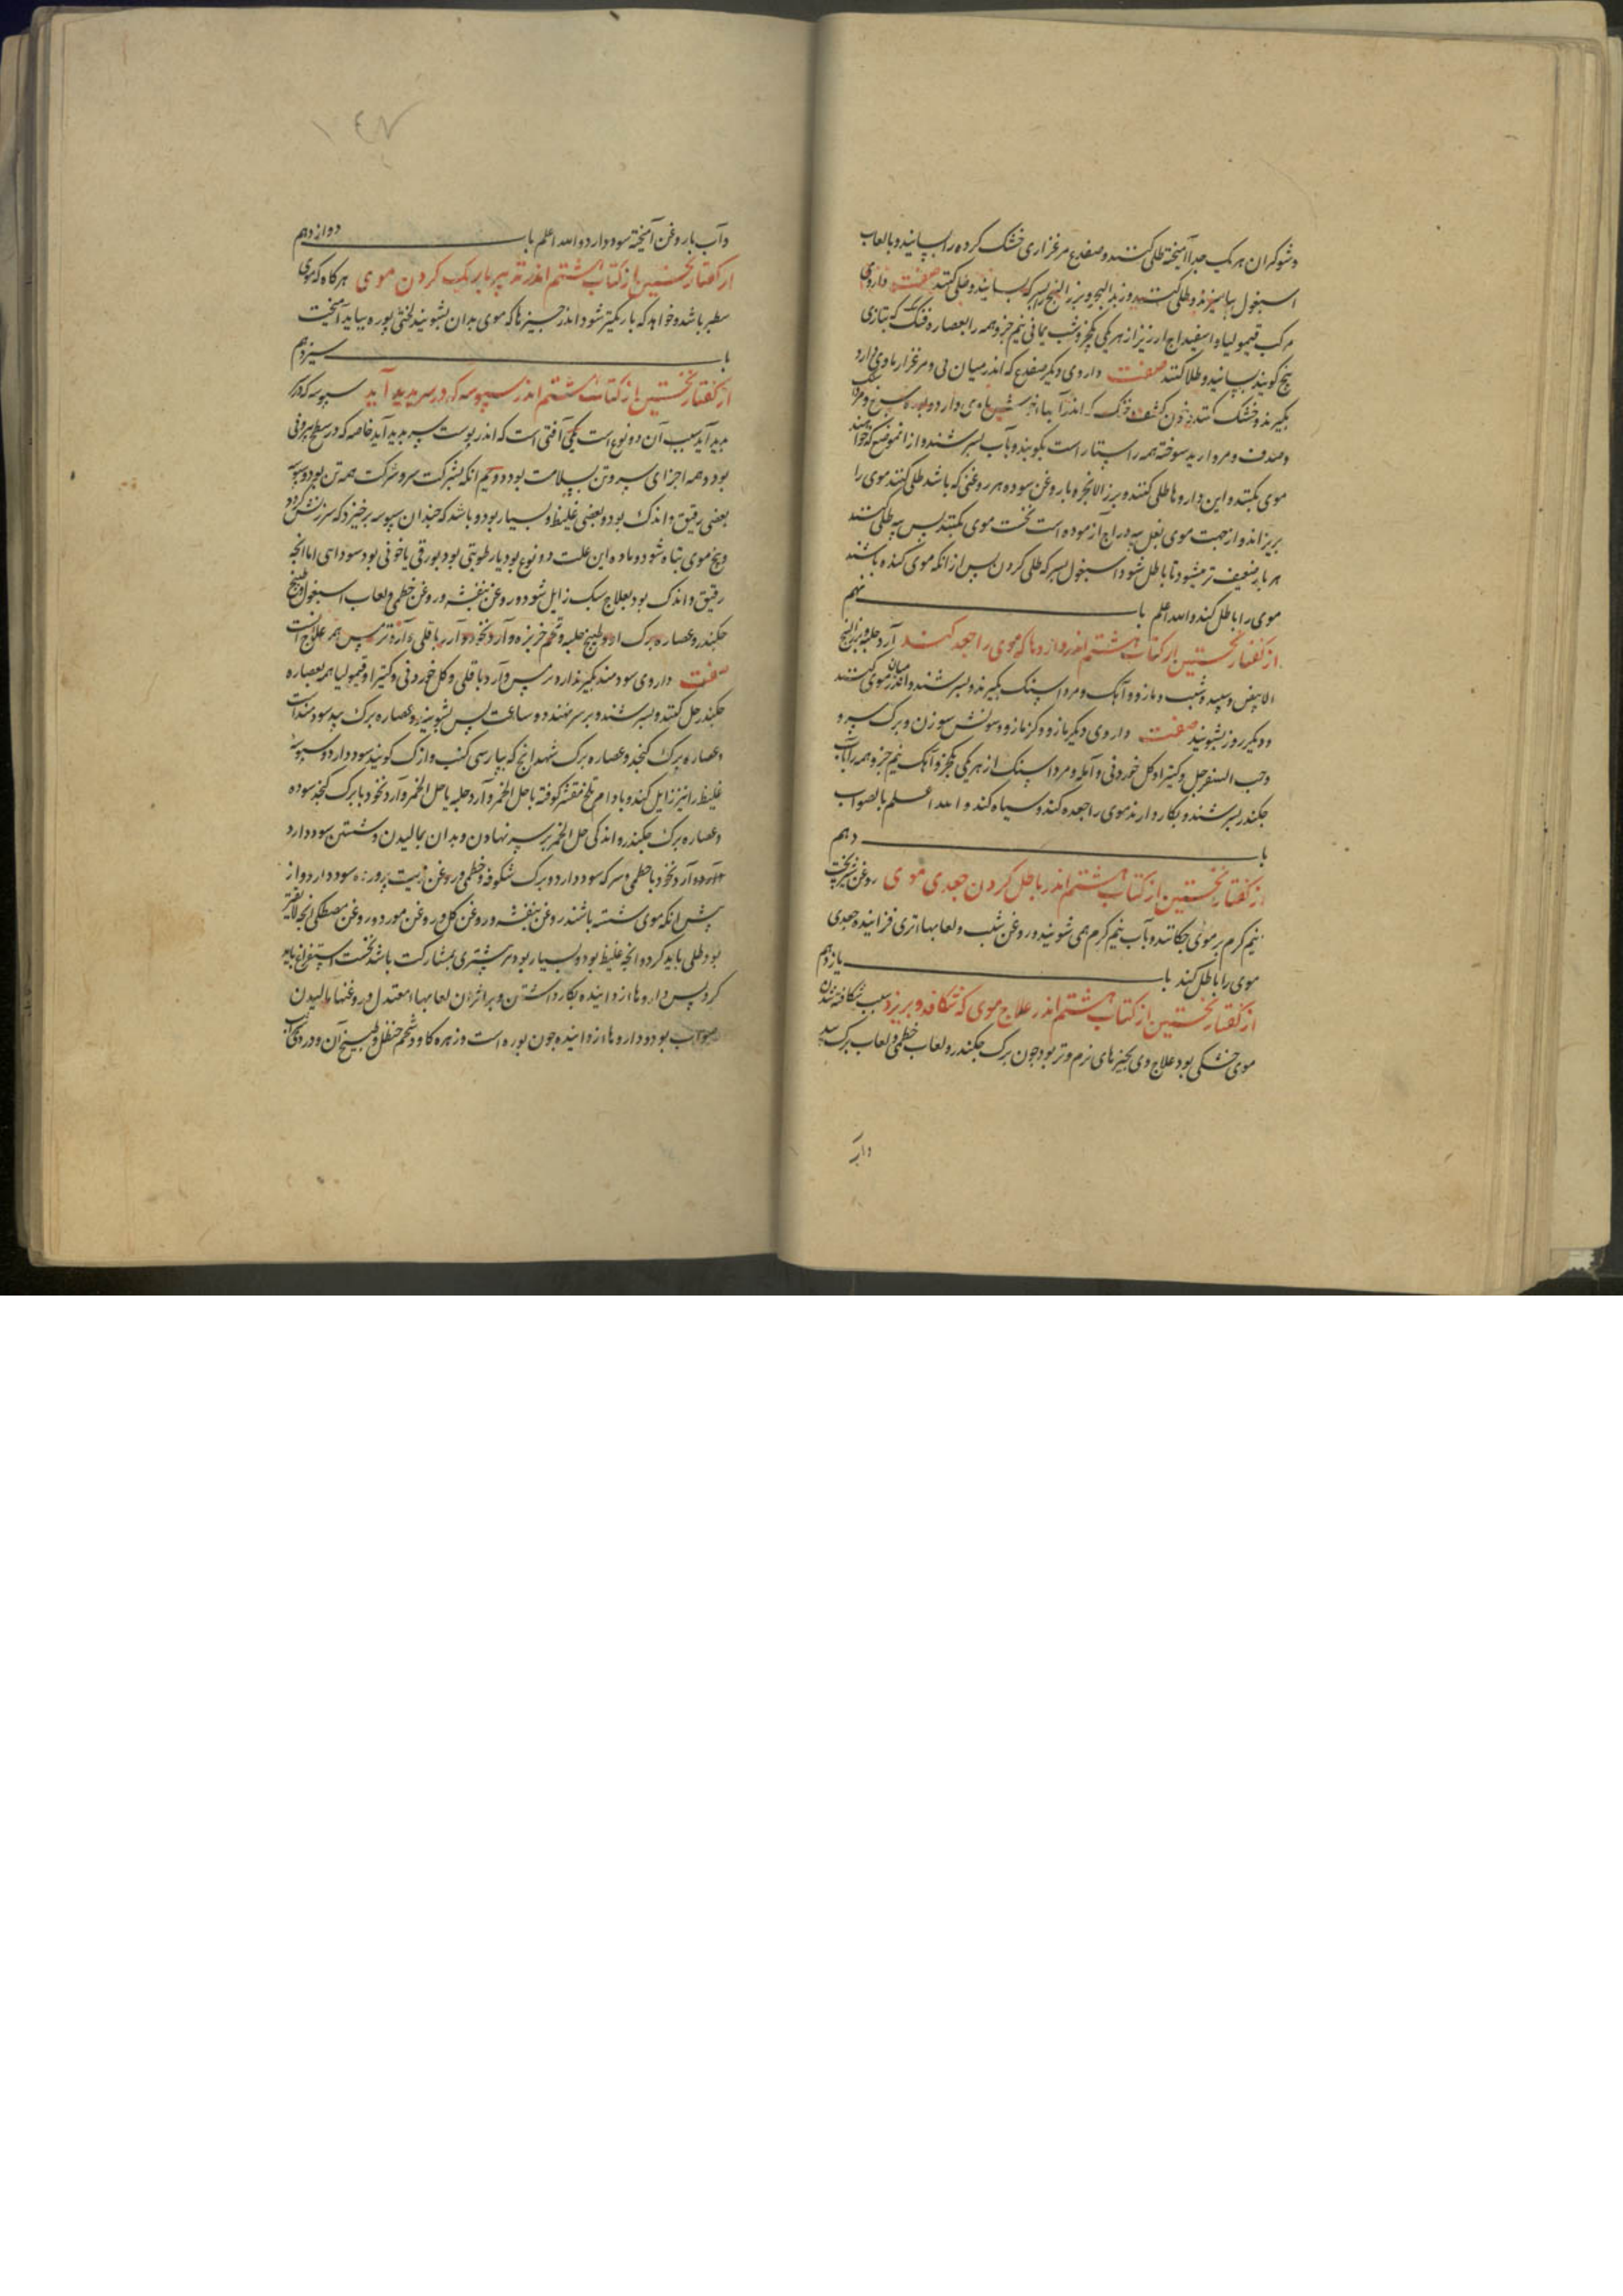 و شوکران هر یک جدا آمیخته طلی کنند و ضفدع مرغزاری خشک کرده را بسایند و با لعاب
اسبغول بیامیزند و طلی کنند و زبد البحر و بزر البنج بسرکه بسایند و طلی کنند صفت داروی
مرکب قیمولیا و اسفیداج ارزیز از هر یکی یکجزو شب یمانی نیم جزو همه را بعصاره که بتازی
بنج کویند بسایند و طلا کنند صفت داروی دیکر ضفدع که اندر میان نی و مرغزار ماوی دارد
بکیرند و خشک کنند و خون کشف که اندر آبها ماوی دارد و بوره سرخ
و صدف و مروارید سوخته همه راستا راست بکوبند و بآب بسرشند و از انموضع که خواهند
موی بکنند و این داروها طلی کنند و بزر الانجره با روغن سوده هر روغنی که باشد طلی کنند موی را
بریزاند و از جهت موی بغل پیه دراج آزموده است نخست موی بکنند پس پیه طلی کنند
هر بار ضعیف تر میشود تا باطل شود و اسبغول بسرکه طلی کردن پس از انکه موی کنده باشند
موی را باطل کند والله اعلم باب نهم
از کفتار نخستین از کتاب هشتم اندر داروها که موی را جعد کند آرد حلبه و بزر البنج
الابیض و سپید و شب و مازو و آهک و مرداسنک بکیرند و بسرشند و اندر میان موی کنند
و دیکر روز بشویند صفت داروی دیکر مازو و کزمازو و سونش سوزن و برک سرو
و حب السفرجل و کتیرا و کل خوردنی و آمله و مرداسنک از هر یکی یکجزو آهک نیم جزو همه را بآب
جکندر بسرشند و بکار دارند موی را جعده کند و سیاه کند والله اعلم بالصواب
باب دهم
از کفتار نخستین از کتاب هشتم اندر باطل کردن جعدی موی روغن شیربخت
نیم کرم بر موی چکانند و بآب نیم کرم همی شویند و روغن شب و لعابها تری فزاینده جعدی
موی را باطل کند باب یازدهم
از کفتار نخستین از کتاب هشتم اندر علاج موی که شکافد و بریزد سبب شکافته شدن
موی خشکی بود علاج وی بچیزهای نرم و تر بود جون برک جکندر و لعاب خطمی و لعاب برک بید
وآب
وآب با روغن آمیخته سود دارد والله اعلم باب دوازدهم
از کفتار نخستین از کتاب هشتم اندر تدبیر باریک کردن موی هرکاه که موی
سطبر باشد و خواهد که باریکتر شود اندر چیزها که موی بدان بشویند لختی بوره بباید آمیخت
باب سیزدهم
از کفتار نخستین از کتاب هشتم اندر سبوسه که در سر پدید آید سبوسه که در سر
پدید آید سبب آن دو نوع است یکی آفتی است که اندر پوست سر پدید آید خاصه که در سطح بیرونی
بود و همه اجزای سر و تن بسلامت بود دویم انکه بشرکت سر و شرکت همه تن بود و سبوسه
بعضی رقیق و اندک بود و بعضی غلیظ و بسیار بود و باشد که چندان سبوسه برخیزد که سر ریش کردد
و بیخ موی تباه شود و ماده این علت دو نوع بود یا رطوبتی بود بورقی یا خونی بود سوداوی اما انچه
رقیق و اندک بود بعلاج سبک زایل شود و روغن بنفشه و روغن خطمی و لعاب اسبغول و طبیخ
جکندر و عصاره برک او و طبیخ حلبه و تخم خربزه و آرد نخود و آرد باقلی و آرد ترمس همه علاج است
صفت داروی سودمند بکیرند آرد ترمس و آرد باقلی و کل خوردنی و کتیرا و قیمولیا همه بعصاره
جکندر حل کنند و بسرشند و بر سر نهند دو ساعت پس بشویند و عصاره برک بید سودمند است
و عصاره برک کنجد و عصاره برک شهدانج که بپارسی کنب و ازک کویند سود دارد و سبوسه
غلیظ را نیز زایل کند و بادام تلخ مقشر کوفته با خل الخمر و آرد حلبه با خل الخمر و آرد نخود با برک کنجد سوده
و عصاره برک جکندر و اندکی خل الخمر بر سر نهادن و بدان بمالیدن و شستن سود دارد
و آرد نخود با خطمی و سرکه سود دارد و برک شکوفه خطمی در روغن زیت پرورده سود دارد و از
پس انکه موی شسته باشند روغن بنفشه و روغن کل و روغن مورد و روغن مصطکی انچه لایقتر
بود طلی باید کرد و انچه غلیظ بود و بسیار بود و بیشتری بمشارکت باشد نخست استفراغ باید
کرد پس داروها زداینده بکار داشتن و بر اثر ان لعابها معتدل و روغنها مالیدن
صواب بود و داروها زداینده جون بوره است و زهره کاو و شحم حنظل و طبیخ آن و دردی شراب
۱٤۷